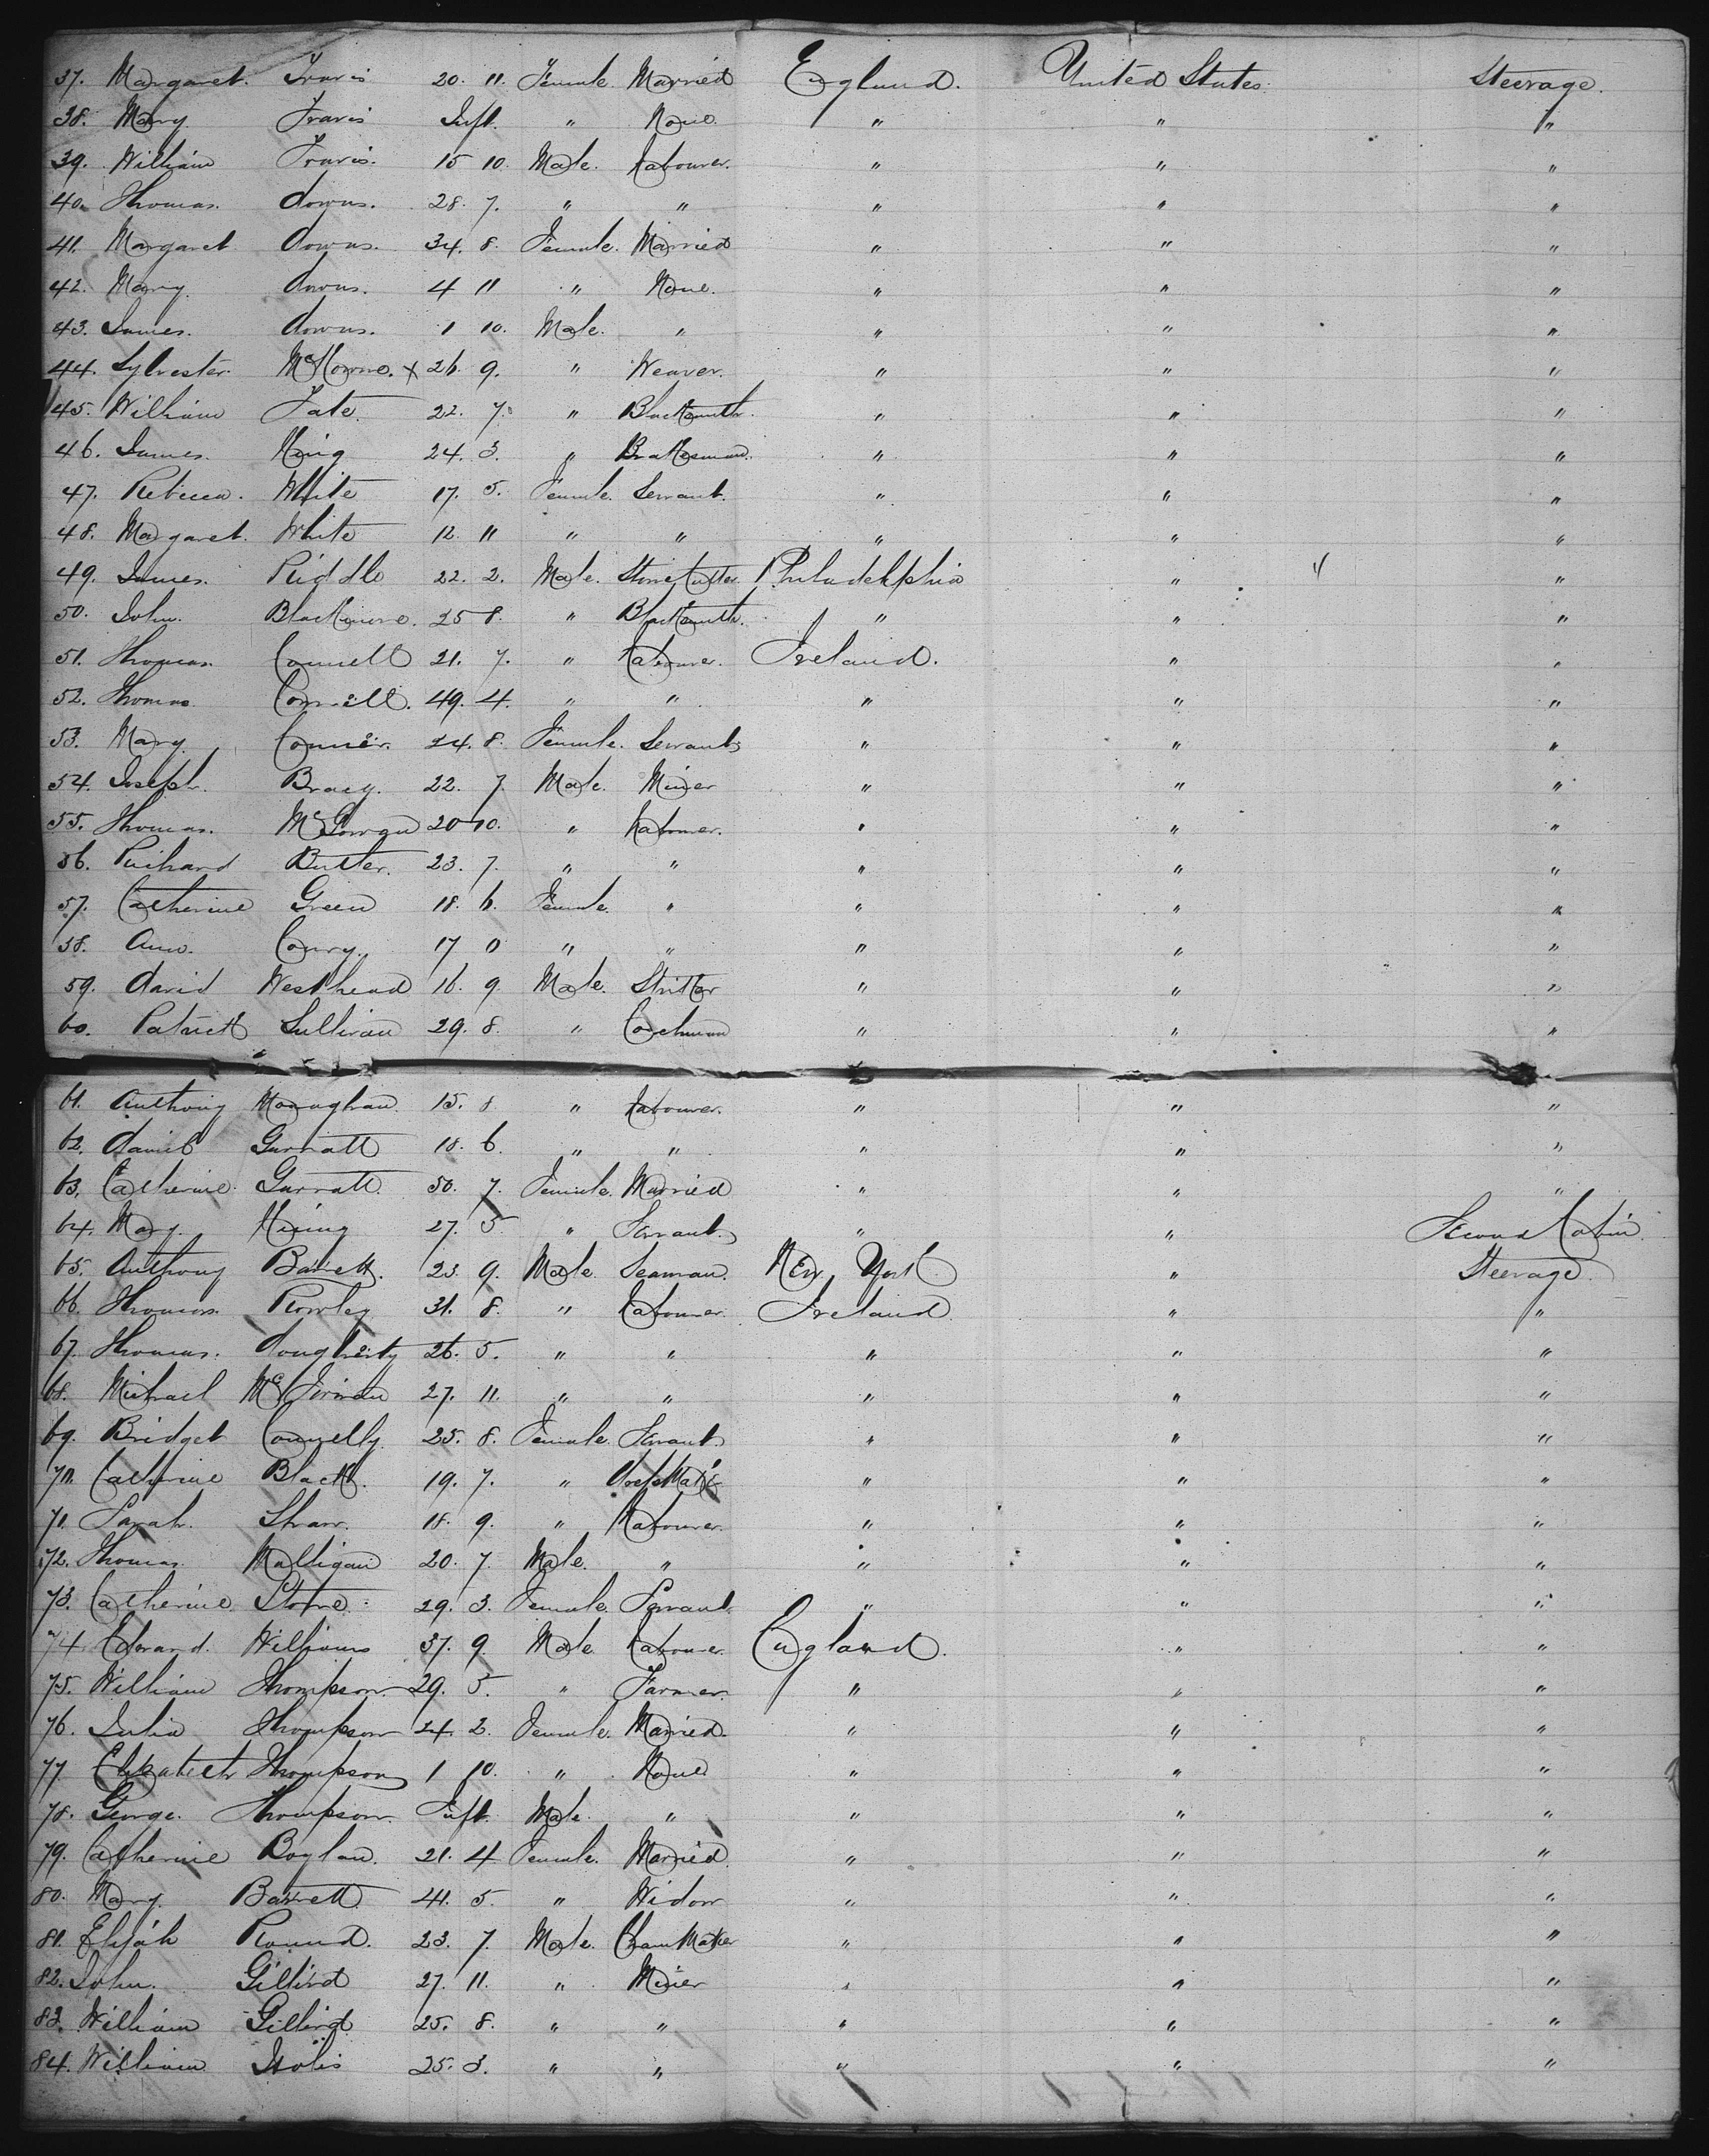 37. Margaret. Travis 20. 11. Female. Married England. United States. Steerage.
38. Mary. Travis Inft. " None. " " "
39. William Travis. 15 10. Male. Labourer. " " "
40. Thomas. downs. 28. 7. " " " " "
41. Margaret downs. 34. 8. Female. Married " " "
42. Mary. downs. 4 11 " None. " " "
43. James. downs. 1 10. Male. " " " "
44. Sylvester. x 26. 9. " Weaver. " " "
45. William Tate. 22. 7. " Blacksmith. " " "
46. James. King 24. 3. " Brakesman. " " "
47. Rebecca. White 17. 5. Female. Servant. " " "
48. Margaret. White 12. 11 " " " " "
49. James. Riddle 22. 2. Male. Stone Cutter. Philadelphia " "
50. John. Blackmore. 25 8. " Blacksmith. " " "
51. Thomas. Connell 21. 7. " Labourer. Ireland. " "
52. Thomas Connell. 49. 4. " " " " "
53. Mary. Conner. 24. 8. Female. Servant " " "
54. Joseph. Bracy. 22. 7. Male. Miner " " "
55. Thomas. McGowan 20 10. " Labourer. " " "
56. Richard Butler. 23. 7. " " " " "
57. Catherine Green 18. 6. Female. " " " "
58. Ann. Conry. 17 0 " " " " "
59. david Westhead 16. 9. Male. " " "
60. Patrick Sullivan 29. 8. " Coachman " " "
61. Anthony Monaghan. 15. 8 " Labourer. " " "
62. daniel Garratt 18. 6. " " " " "
63. Catherine. Garratt. 50. 7. Female. Married " " "
64. Mary. King 27. 5 " Servant. " " Second Cabin.
65. Anthony Barrett. 23. 9. Male. Seaman. New York " Steerage.
66. Thomas. Rowley 31. 8. " Labourer. Ireland " "
67. Thomas. dougherty 26. 5. " " " " "
68. Michael 27. 11. " " " " "
69. Bridget Connelly. 25. 8. Female. Servant. " " "
70. Catherine Black. 19. 7. " " " "
71. Sarah. Shaw. 18. 9. " Labourer. " " "
72. Thomas. Mulligan 20. 7. Male. " " " "
73. Catherine. Stone. 29. 3. Female. Servant. " " "
74. Edward. Williams 37. 9 Male Labourer. England. " "
75. William Thompson. 29. 5. " Farmer. " " "
76. Julia Thompson 24. 2. Female. Married. " " "
77. Elizabeth Thompson 1 10. " None. " " "
78. George. Thompson. Inft. Male. " " " "
79. Catherine Boylan. 21. 4 Female. Married. " " "
80. Mary. Barrett 41. 5. " Widow " " "
81. Elijah Round. 23. 7. Male. Chain Maker " " "
82. John. 27. 11. " Miner " " "
83. William 25. 8. " " " " "
84. William 25. 3. " " " " "